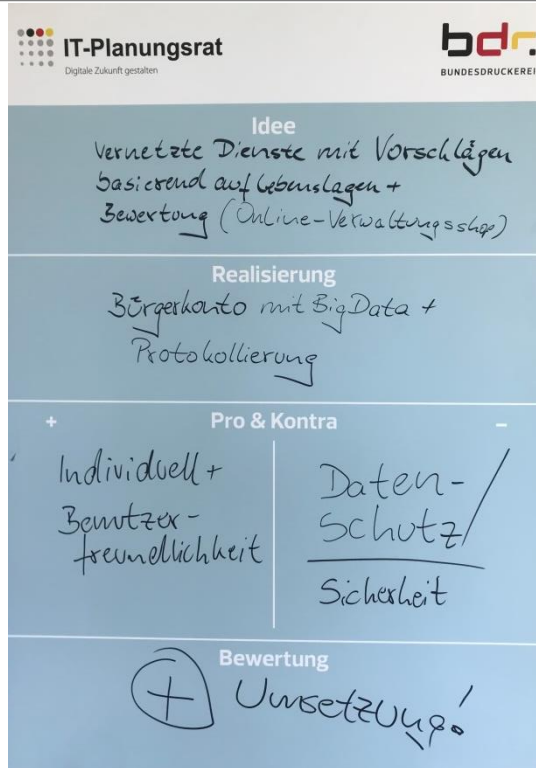 IT-Planungsrat
Digitale Zukunft gestalten
bdr.
BUNDESDRUCKEREI
Idee
Vernetzte Dienste mit Vorschlägen
basierend auf Lebenslagen +
Bewertung (Online-Verwaltungsshop)
Realisierung
Bürgerkonto mit BigData +
Protokollierung
+ Pro & Kontra -
Individuell +
Benutzer-
freundlichkeit
Daten-
schutz/
Sicherheit
Bewertung
+ Umsetzung!